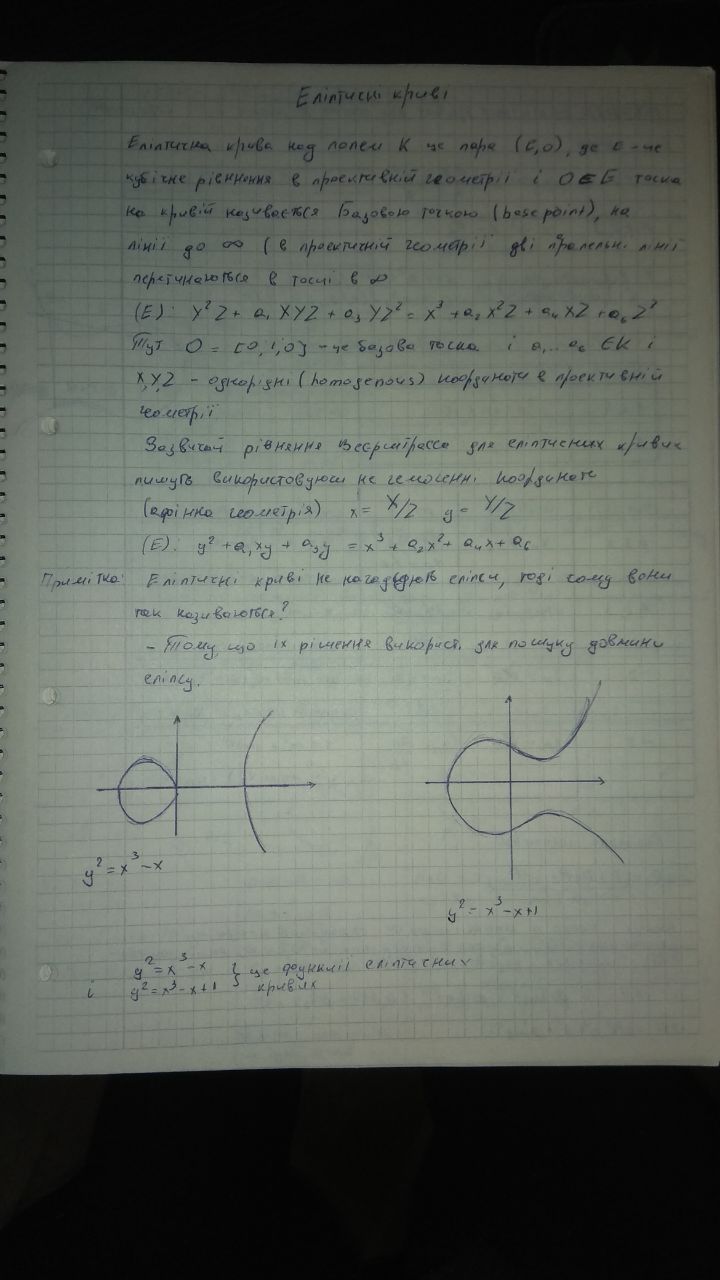 Еліптичні криві
Еліптична крива над полем K це пара (E,O), де E – це
кубічне рівнення в проективній геометрії і O∈E точка
на кривій називається Базовою точкою (base point), на
лінії до ∞ (в проектичній геометрії дві пралельні лінії
перетинаються в точці в ∞
(E): Y²Z + a₁XYZ + a₃YZ² = X³ + a₂X²Z + a₄XZ + a₆Z³
Тут O = [0,1,0] – це базова точка і a₁...a₆ ∈K і
X,Y,Z – однорідні (homogenous) координати в проективній
геометрії
Зазвичай рівняння Веєрштрасса для еліптичних кривих
пишуть використовуючи не координати
(афінна геометрія) x = X/Z y = Y/Z
(E): y² + a₁xy + a₃y = x³ + a₂x² + a₄x + a₆
Примітка: Еліптичні криві не нагадують еліпси, тоді чому вони
так називаються?
– Тому, що їх рішення використ. для пошуку довжини
еліпсу.
y² = x³ – x
y² = x³ – x + 1
y² = x³ – x } це функції еліптичних
і y² = x³ – x + 1 кривих